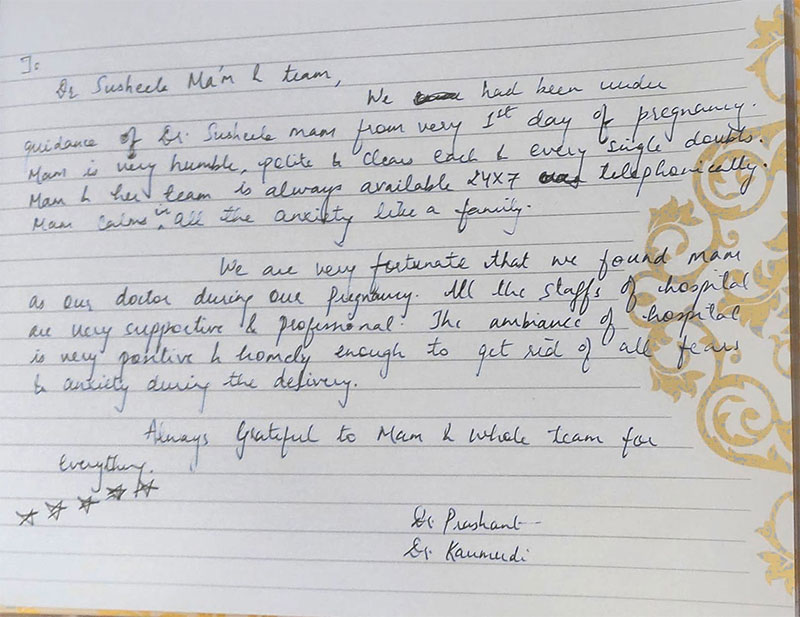 To:
Dr Susheela Ma'm & team,
We had been under
guidance of Dr. Susheela mam from very 1st day of pregnancy.
Mam is very humble, polite & clears each & every single doubts.
Mam & her team is always available 24X7 telephonically.
Mam calms in all the anxiety like a family.
We are very fortunate that we found mam
as our doctor during our pregnancy. All the staffs of hospital
are very supportive & professional. The ambiance of hospital
is very positive & homely enough to get rid of all fears
& anxiety during the delivery.
Always Grateful to Mam & whole team for
everything.
☆ ☆ ☆ ☆ ☆
Dr. Prashant
Dr. Kaumudi